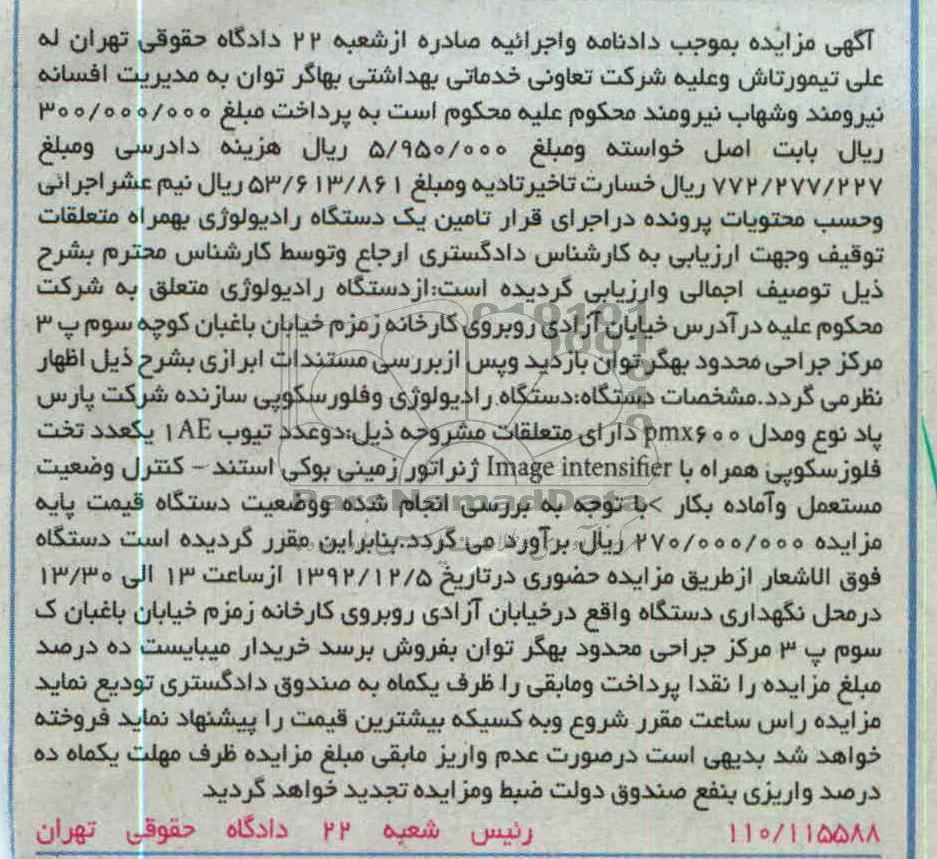 آگهی مزایده بموجب دادنامه واجرائیه صادره ازشعبه ۲۲ دادگاه حقوقی تهران له
علی تیمورتاش وعلیه شرکت تعاونی خدماتی بهداشتی بهاگر توان به مدیریت افسانه
نیرومند وشهاب نیرومند محکوم علیه محکوم است به پرداخت مبلغ ۳۰۰/۰۰۰/۰۰۰
ریال بابت اصل خواسته ومبلغ ۵/۹۵۰/۰۰۰ ریال هزینه دادرسی ومبلغ
۷۷۲/۲۷۷/۲۲۷ ریال خسارت تاخیرتادیه ومبلغ ۵۳/۶۱۳/۸۶۱ ریال نیم عشر اجرائی
وحسب محتویات پرونده دراجرای قرار تامین یک دستگاه رادیولوژی بهمراه متعلقات
توقیف وجهت ارزیابی به کارشناس دادگستری ارجاع وتوسط کارشناس محترم بشرح
ذیل توصیف اجمالی وارزیابی گردیده است:ازدستگاه رادیولوژی متعلق به شرکت
محکوم علیه درآدرس خیابان آزادی روبروی کارخانه زمزم خیابان باغبان کوچه سوم پ ۳
مرکز جراحی محدود بهگر توان بازدید وپس ازبررسی مستندات ابرازی بشرح ذیل اظهار
نظرمی گردد.مشخصات دستگاه:دستگاه رادیولوژی وفلورسکوپی سازنده شرکت پارس
پاد نوع ومدل pmx۶۰۰ دارای متعلقات مشروحه ذیل:دوعدد تیوب ۱AE یکعدد تخت
فلوزسکوپی همراه با Image intensifier ژنراتور زمینی بوکی استند - کنترل وضعیت
مستعمل وآماده بکار >با توجه به بررسی انجام شده ووضعیت دستگاه قیمت پایه
مزایده ۲۷۰/۰۰۰/۰۰۰ ریال برآورد می گردد.بنابراین مقرر گردیده است دستگاه
فوق الاشعار ازطریق مزایده حضوری درتاریخ ۱۳۹۲/۱۲/۵ ازساعت ۱۳ الی ۱۳/۳۰
درمحل نگهداری دستگاه واقع درخیابان آزادی روبروی کارخانه زمزم خیابان باغبان ک
سوم پ ۳ مرکز جراحی محدود بهگر توان بفروش برسد خریدار میبایست ده درصد
مبلغ مزایده را نقدا پرداخت ومابقی را ظرف یکماه به صندوق دادگستری تودیع نماید
مزایده راس ساعت مقرر شروع وبه کسیکه بیشترین قیمت را پیشنهاد نماید فروخته
خواهد شد بدیهی است درصورت عدم واریز مابقی مبلغ مزایده ظرف مهلت یکماه ده
درصد واریزی بنفع صندوق دولت ضبط ومزایده تجدید خواهد گردید
۱۱۰/۱۱۵۵۸۸ رئیس شعبه ۲۲ دادگاه حقوقی تهران
ParsNamadData